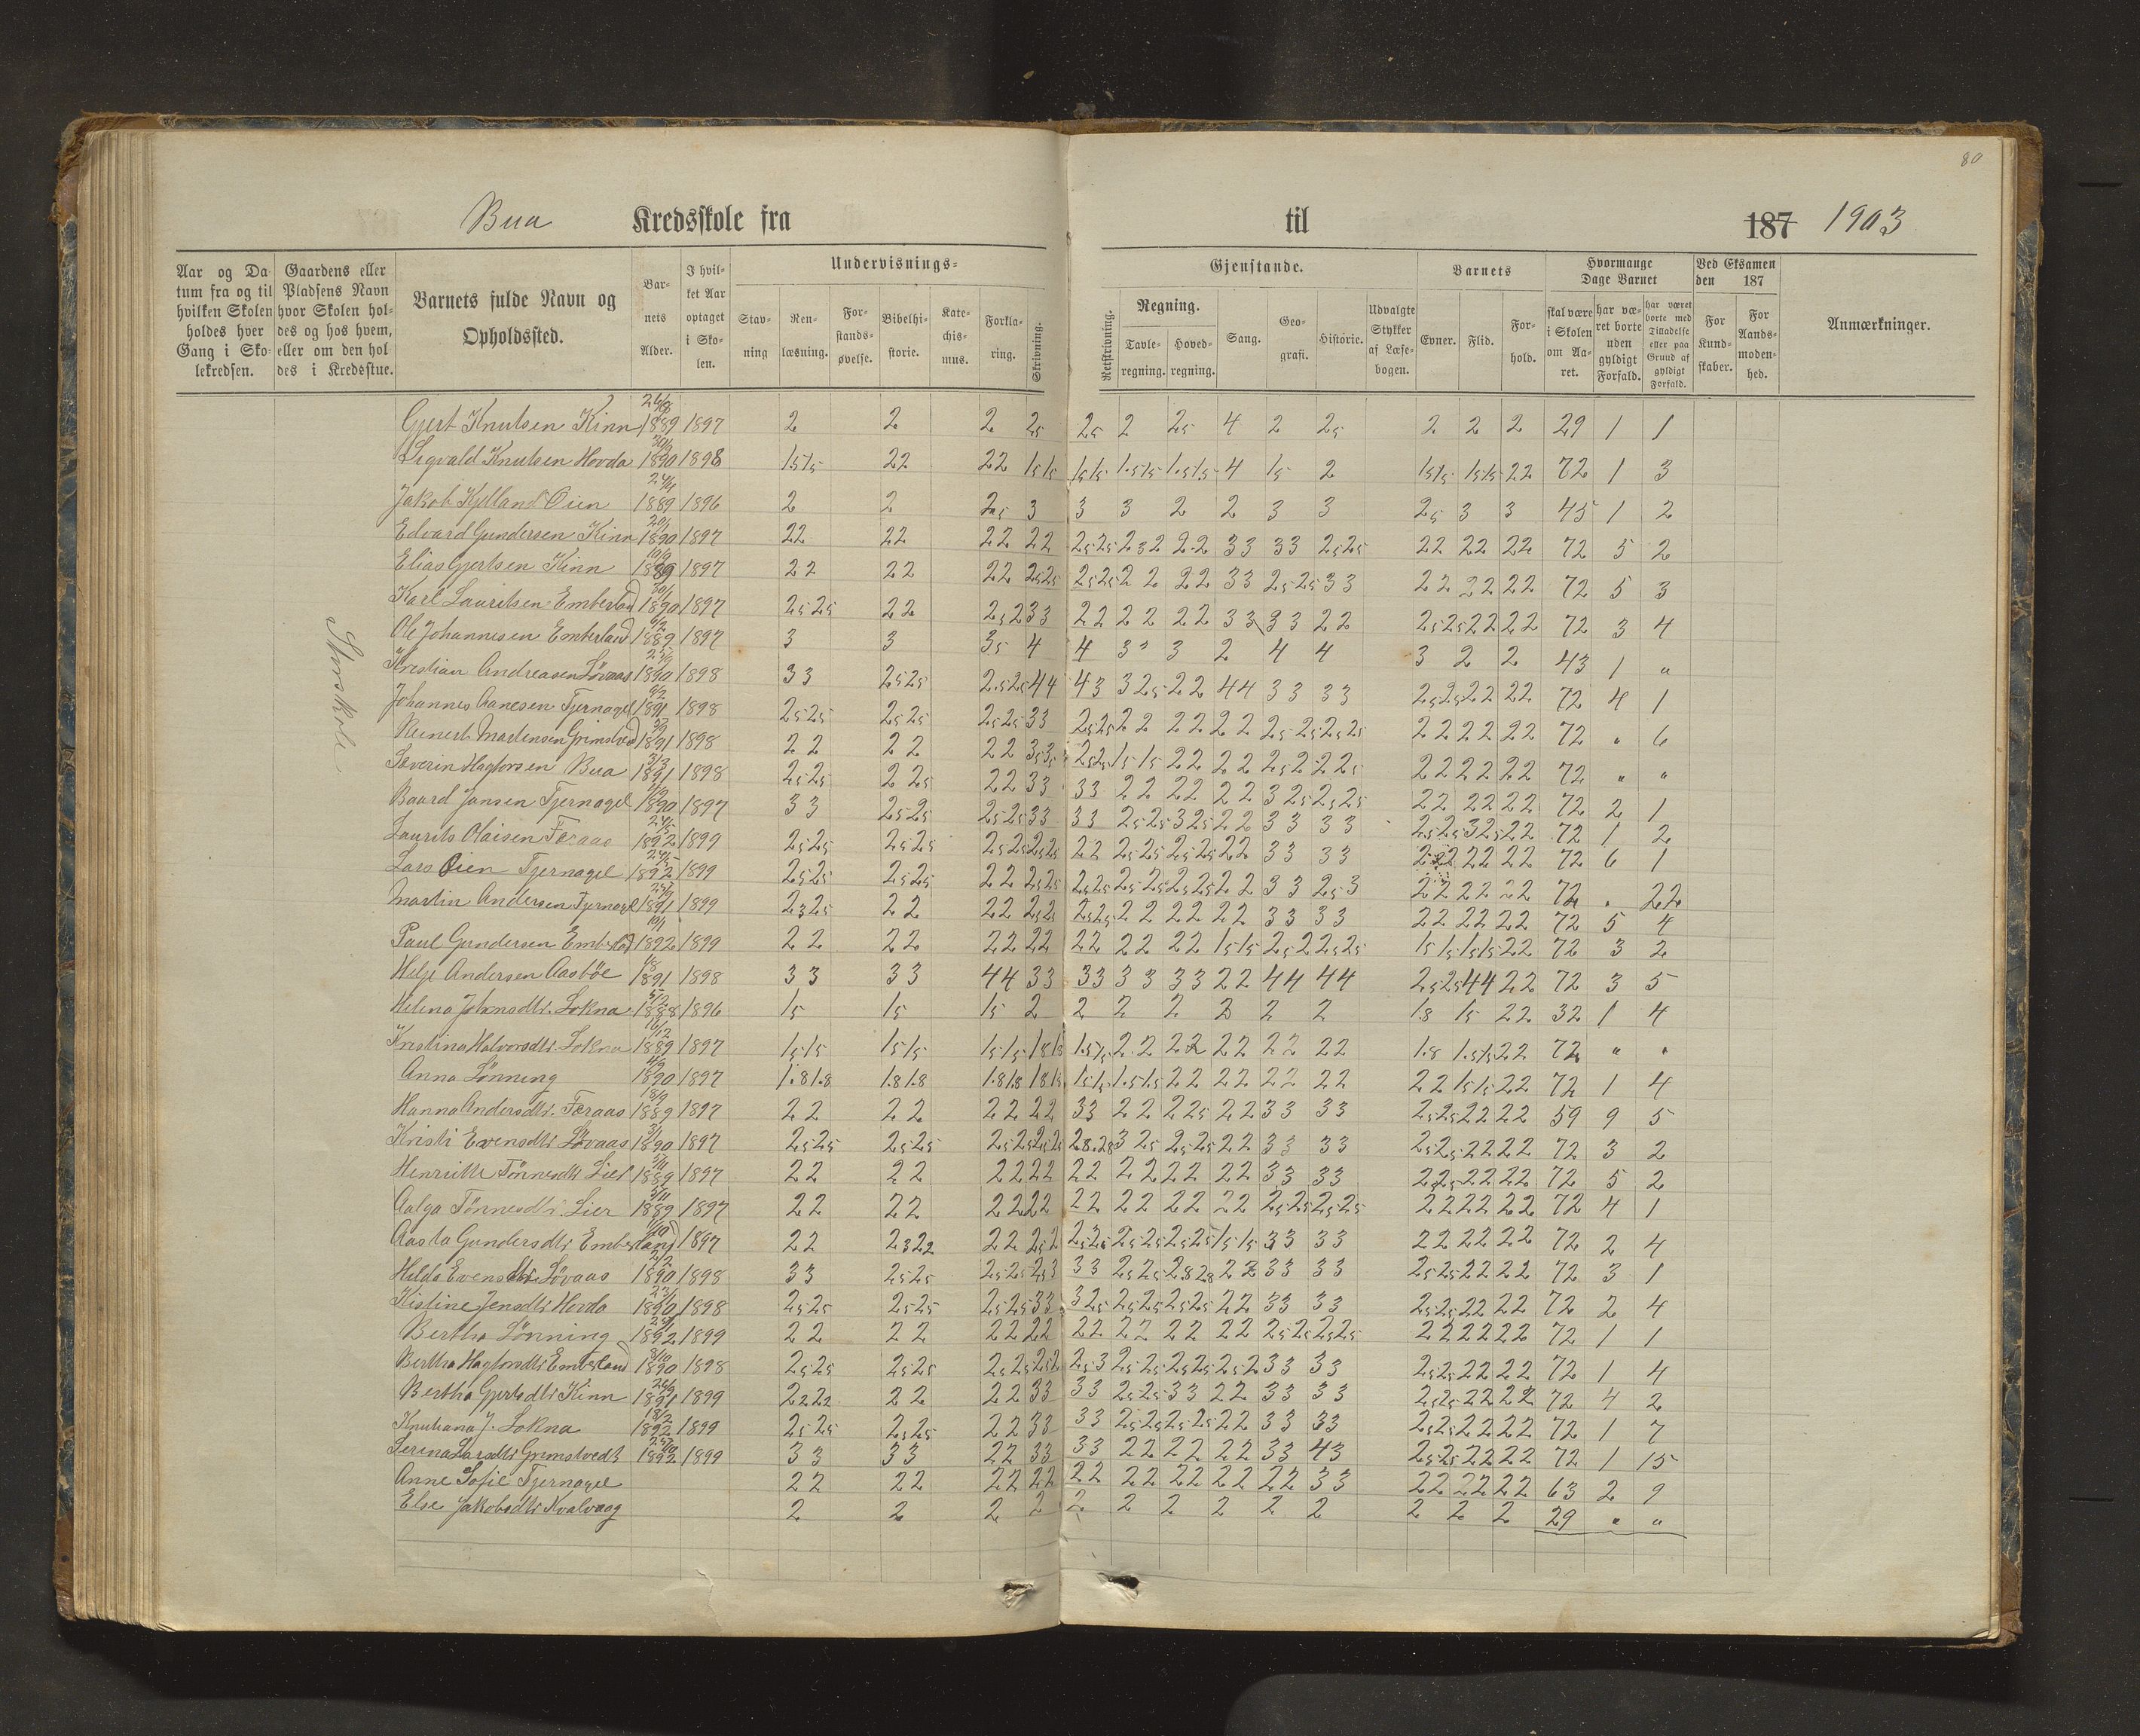 80
Bua Kredsskole fra til 187 1903
Aar og Datum fra og til hvilken Skolen holdes hver Gang i Skolekredsen.
Gaardens eller Pladsens Navn hvor Skolen holdes og hos hvem, eller om den holdes i Kredsstue.
Barnets fulde Navn og Opholdssted.
Barnets Alder.
I hvilket Aar optaget i Skolen.
Undervisnings-
Stavning
Renlæsning.
Forstandsøvelse.
Bibelhistorie.
Katechismus.
Forklaring.
Skrivning.
Gjenstande.
Retskrivning.
Regning.
Tavleregning.
Hovedregning.
Sang.
Geografi.
Historie.
Udvalgte Stykker af Læsebogen.
Barnets
Evner.
Flid.
Forhold.
Hvormange Dage Barnet
skal være i Skolen om Aaret.
har været borte uden gyldigt Forfald.
har været borte med Tilladelse eller paa Grund af gyldigt Forfald.
Ved Eksamen den 187
For Kundskaber.
For Aandsmodenhed.
Anmærkninger.
Storskole
Gjert Knutsen Kinn 1889 1897 2 2 2 25 25 2 25 4 2 25 2 2 2 29 1 1
Sigvald Knutsen Hovda 1890 1898 1515 22 22 1515 1515 1515 1515 4 15 2 1515 1515 22 72 1 3
Jakob Kylland Oien 1889 1896 2 2 25 3 3 3 2 2 3 3 25 3 3 45 1 2
Edvard Gundersen Kinn 1890 1897 22 22 22 22 2525 232 22 33 33 2525 22 22 22 72 5 2
Elias Gjertsen Kinn 1889 1897 22 22 22 2525 2525 22 22 33 2525 33 22 22 22 72 5 3
Karl Lauritsen Emberland 1890 1897 2525 22 252 33 22 22 22 33 33 22 2525 22 22 72 3 4
Ole Johannesen Emberland 1889 1897 3 3 35 4 4 33 3 2 4 4 3 2 2 43 1 "
Kristian Andreasen Lövaas 1890 1898 33 2525 2525 44 43 325 22 44 33 33 2525 22 22 72 4 1
Johannes Aanesen Tjernagel 1891 1898 2525 2525 2525 33 2525 22 22 22 2525 2525 22 22 22 72 " 6
Reinert Martensen Grimstved 1891 1898 22 22 22 3535 2525 1515 22 22 252 225 22 22 22 72 " "
Severin Hagtorsen Bua 1891 1898 2525 225 22 33 33 22 22 22 325 2525 22 22 22 72 2 1
Baard Jansen Tjernagel 1890 1897 33 2525 2525 33 33 2525 325 22 33 33 2525 325 22 72 1 2
Laurits Olaisen Feraas 1892 1899 2525 2525 2525 2525 22 2525 2525 22 33 33 22 22 22 72 6 1
Lars Oien Tjernagel 1892 1899 2525 2525 22 2525 2525 2525 2525 22 33 253 22 22 22 72 " 22
Martin Andersen Tjernagel 1891 1899 2325 22 22 2525 2525 22 22 22 33 33 22 22 22 72 5 4
Paul Gundersen Emberland 1892 1899 22 22 22 22 22 22 22 1515 252 2525 1515 1515 22 72 3 2
Helje Andersen Aasböe 1891 1898 33 33 44 33 33 33 33 22 44 44 2525 44 22 72 3 5
Helena Johansdtr. Lokna 1888 1896 15 15 15 2 2 2 2 2 2 2 18 15 22 32 1 4
Kristina Halvorsdtr. Lokna 1889 1897 1515 1515 1515 1818 1515 22 22 22 22 22 18 1515 22 72 " "
Anna Lönning 1890 1897 1818 1818 1818 1818 1515 1515 22 22 22 22 22 1515 22 72 1 4
Hanna Andersdtr. Feraas 1889 1897 22 22 22 22 33 22 225 22 33 33 2525 22 22 59 9 5
Kristi Evensdtr Lövaas 1890 1897 2525 2525 2525 2525 2828 325 2525 22 33 33 2525 22 22 72 3 2
Henritte Tönnesdtr Lier 1889 1897 22 22 22 22 22 22 22 22 33 33 2525 22 22 72 5 2
Aalga Tönnesdtr. Lier 1889 1897 22 22 22 22 22 22 22 22 2525 2525 22 22 22 72 4 1
Aasta Gundersdtr Emberland 1897 22 2322 22 252 2525 2525 2525 1515 33 33 22 22 22 72 2 4
Hilda Evensdtr. Lövaas 1890 1898 33 2525 2525 253 33 2525 2828 22 33 33 2525 22 22 72 3 1
Kistine Jensdtr Hovda 1890 1898 2525 2525 2525 33 325 2525 2525 22 33 33 2525 22 22 72 2 4
Bertha Lönning 1892 1899 22 22 22 22 22 22 22 22 2525 2525 22 22 22 72 1 1
Bertha Hagtorsdtr Emberland 1890 1898 2525 2525 2525 252 253 2525 2525 252 33 33 2525 22 22 72 1 4
Bertha Gjertsdtr Kinn 1891 1899 2222 22 22 33 33 2525 33 22 33 33 2525 22 22 72 4 2
Knutiana J. Lokna 1892 1899 2525 2525 22 33 33 2525 2525 22 33 33 2525 22 22 72 1 7
Serina Larsdtr Grimstvedt 1892 1899 33 33 22 33 33 22 22 22 33 43 2525 22 22 72 1 15
Anne Sofie Tjernagel 22 22 22 22 22 22 22 22 22 33 22 22 22 63 2 9
Else Jakobsdtr Kvalvaag 2 2 2 2 2 2 2 2 2 2 2 2 2 29 " "